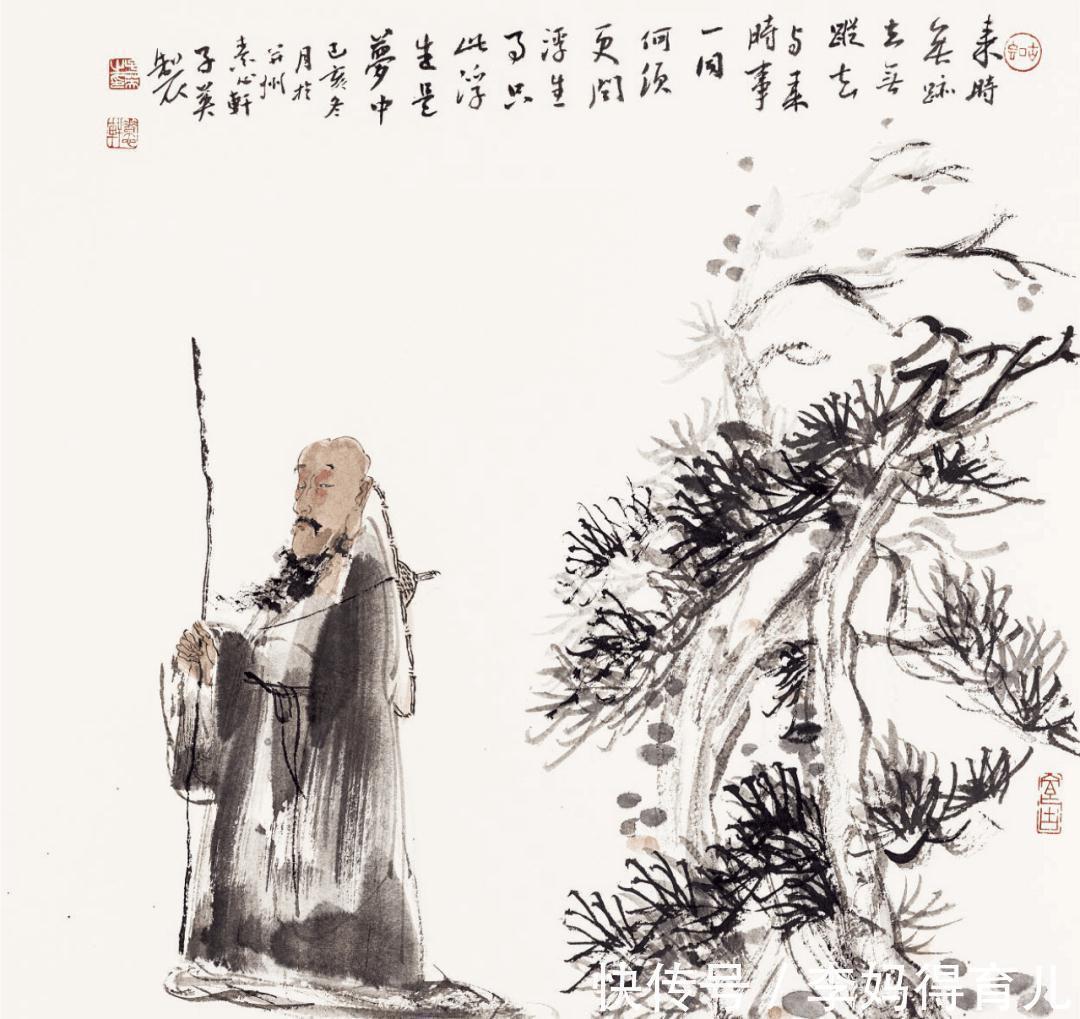 来時
無跡
去無
蹤去
与来
時事
一同
何须
更问
浮生
事只
此浮
生是
夢中
己亥冬
月於
并州
素心軒
子英
製
快传号 / 李妈得育儿